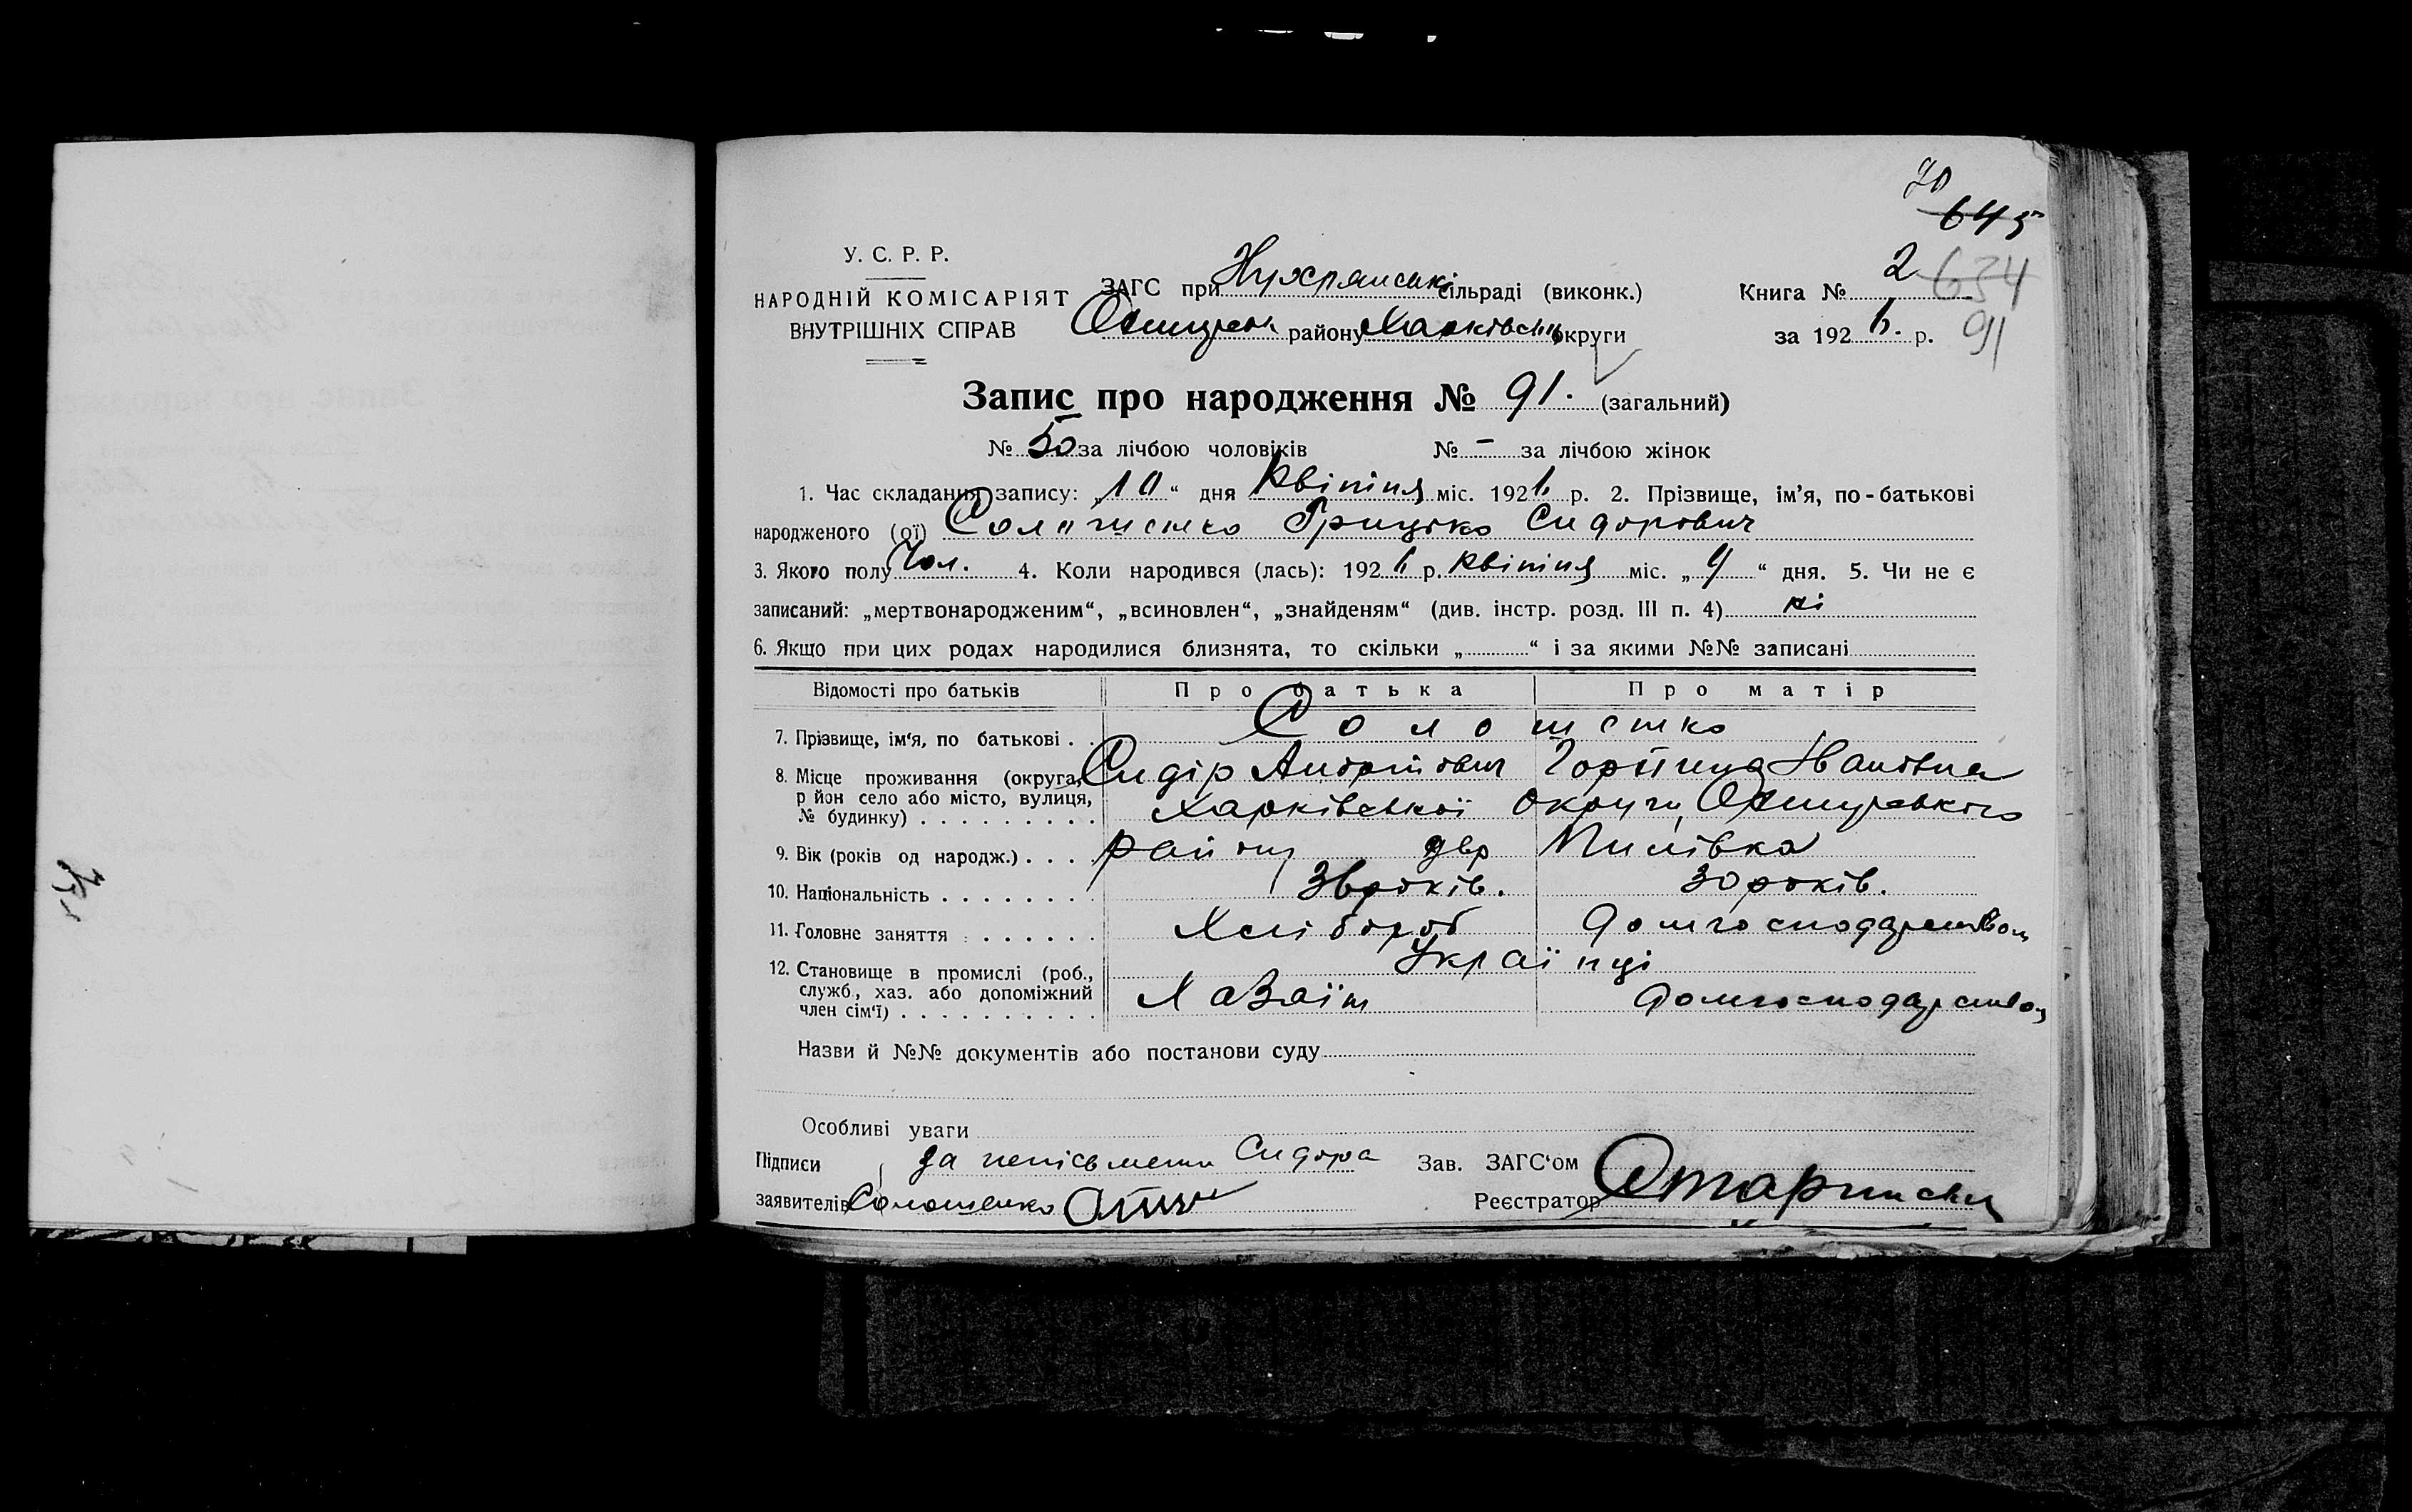 70
645
У. С. Р. Р.
НАРОДНІЙ КОМІСАРІЯТ
ВНУТРІШНІХ СПРАВ
ЗАГС при сільраді (виконк.)
району Харківськ округи
Книга № 2 634
за 1926. р. 91
Запис про народження № 91. (загальний)
№ 50 за лічбою чоловіків № – за лічбою жінок
1. Час складання запису: „10“ дня Квітня міс. 1926 р. 2. Прізвище, ім'я, по-батькові
народженого (ої) Грицько Сидорович
3. Якого полу Чол. 4. Коли народився (лась): 1926 р. Квітня міс. „9“ дня. 5. Чи не є
записаний: „мертвонародженим“, „всиновлен“, „знайденям“ (див. інстр. розд. III п. 4) ні
6. Якщо при цих родах народилися близнята, то скільки „ “ і за якими №№ записані
Відомості про батьків Про батька Про матір
7. Прізвище, ім'я, по батькові
8. Місце проживання (округа, Сидір Андрійович Горпина Івановна
р йон село або місто, вулиця, Харківської Округи
№ будинку)
9. Вік (років од народж.) району
10. Національність 36 років. 30 років.
11. Головне заняття Хлібороб домгосподарством
Українці
12. Становище в промислі (роб.,
служб., хаз. або допоміжний Хазаїн домгосподарством
член сім'ї)
Назви й №№ документів або постанови суду
Особливі уваги
Підписи за Сидора
заявителів Солошенко
Зав. ЗАГС'ом
Реєстратор